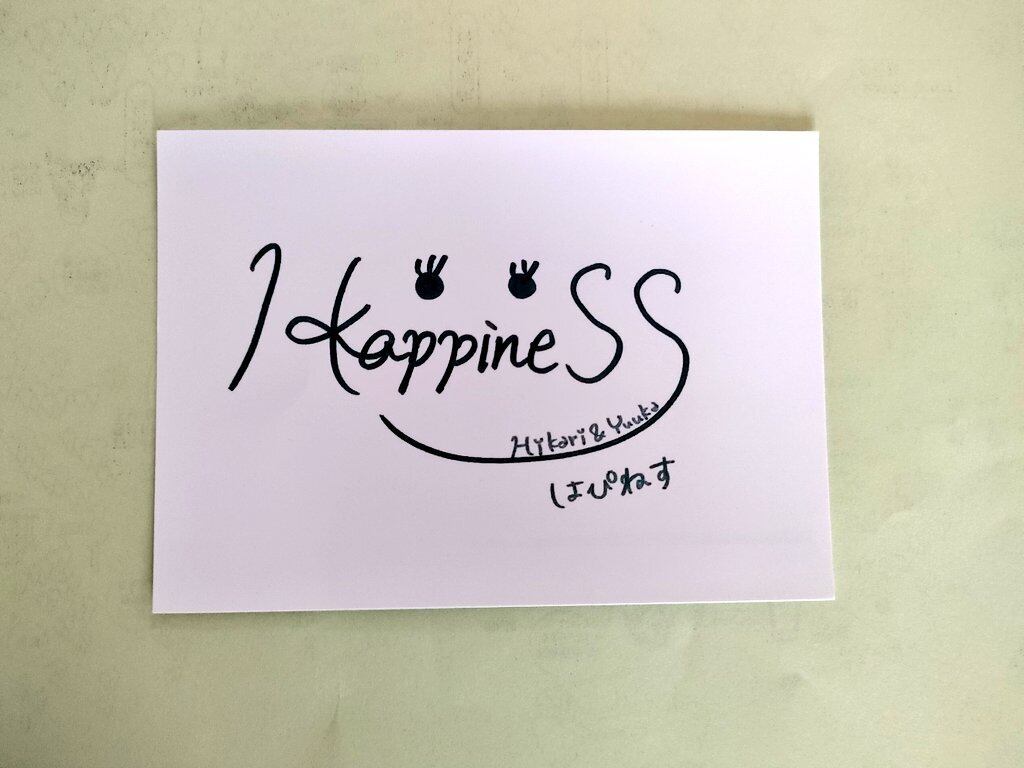 HappineSS
Hikari & Yuuka
はぴねす